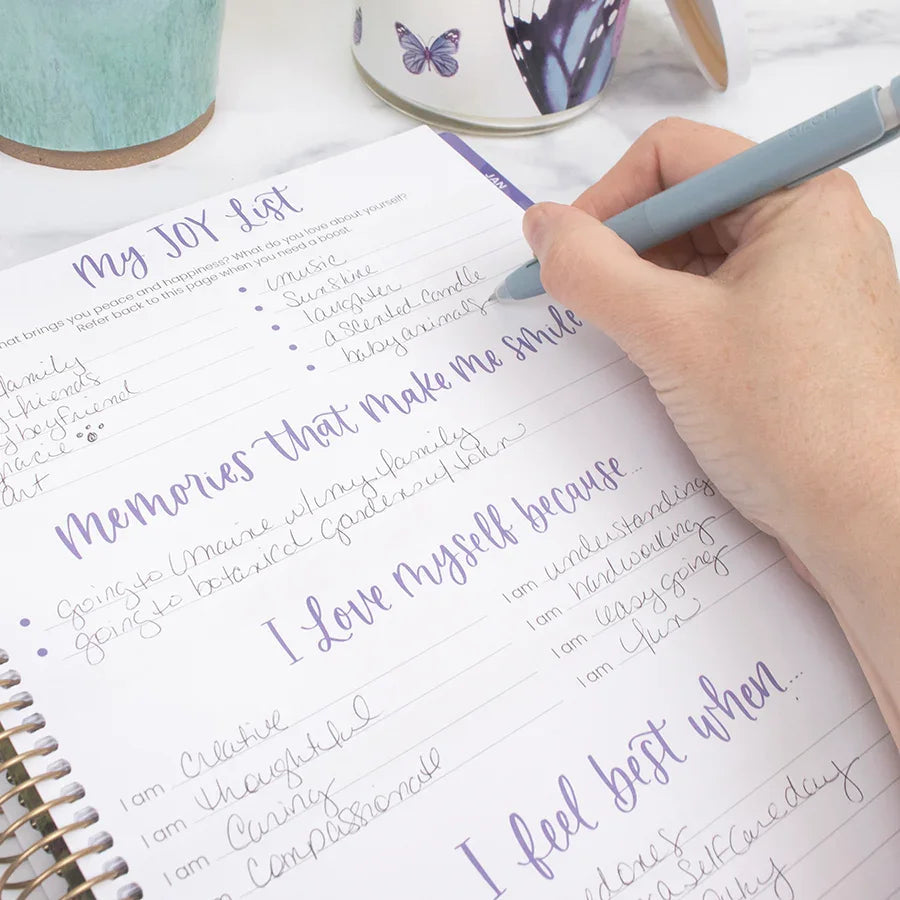 JAN
My JOY List
hat brings you peace and happiness? What do you love about yourself?
Refer back to this page when you need a boost.
family
friends
boyfriend
Art
music
Sunshine
laughter
a scented candle
baby animals
Memories that make me smile
going to Maine w/my family
going to botanical gardens w/
I Love myself because...
I am creative
I am thoughtful
I am caring
am compassionate
I am understanding
I am hardworking
I am easy going
I am fun
I feel best when...
a Self Care day